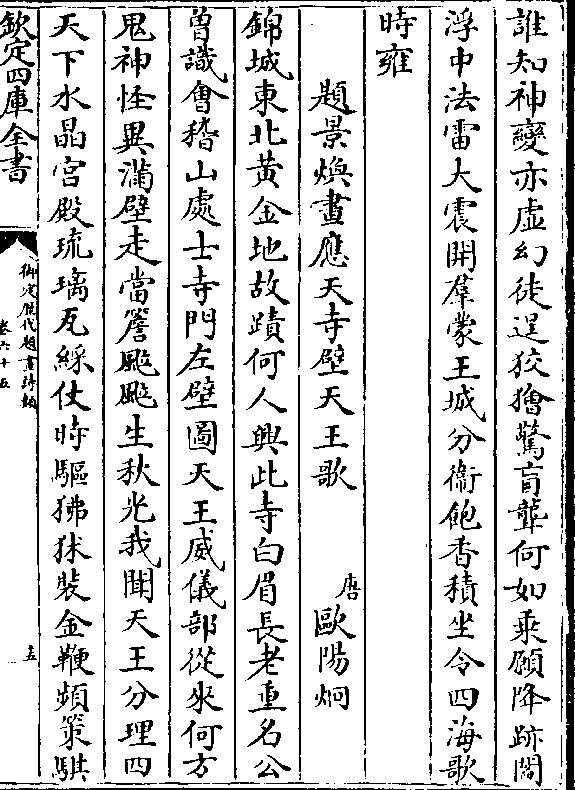 誰知神變亦虛幻徒逞狡獪驚盲聾何如乘願降跡閻
浮中法雷大震開羣蒙王城分衞飽香積坐令四海歌
時雍
題景煥畫應天寺壁天王歌
唐歐陽炯
錦城東北黃金地故蹟何人興此寺白眉長老重名公
曽識會稽山處士寺門左壁圖天王威儀部從來何方
鬼神怪異滿壁走當簷颯颯生秋光我聞天王分理四
天下水晶宮殿琉璃瓦綵仗時驅狒㹱裝金鞭頻策騏
欽定四庫全書
御定歴代題畫詩類
卷六十五
五